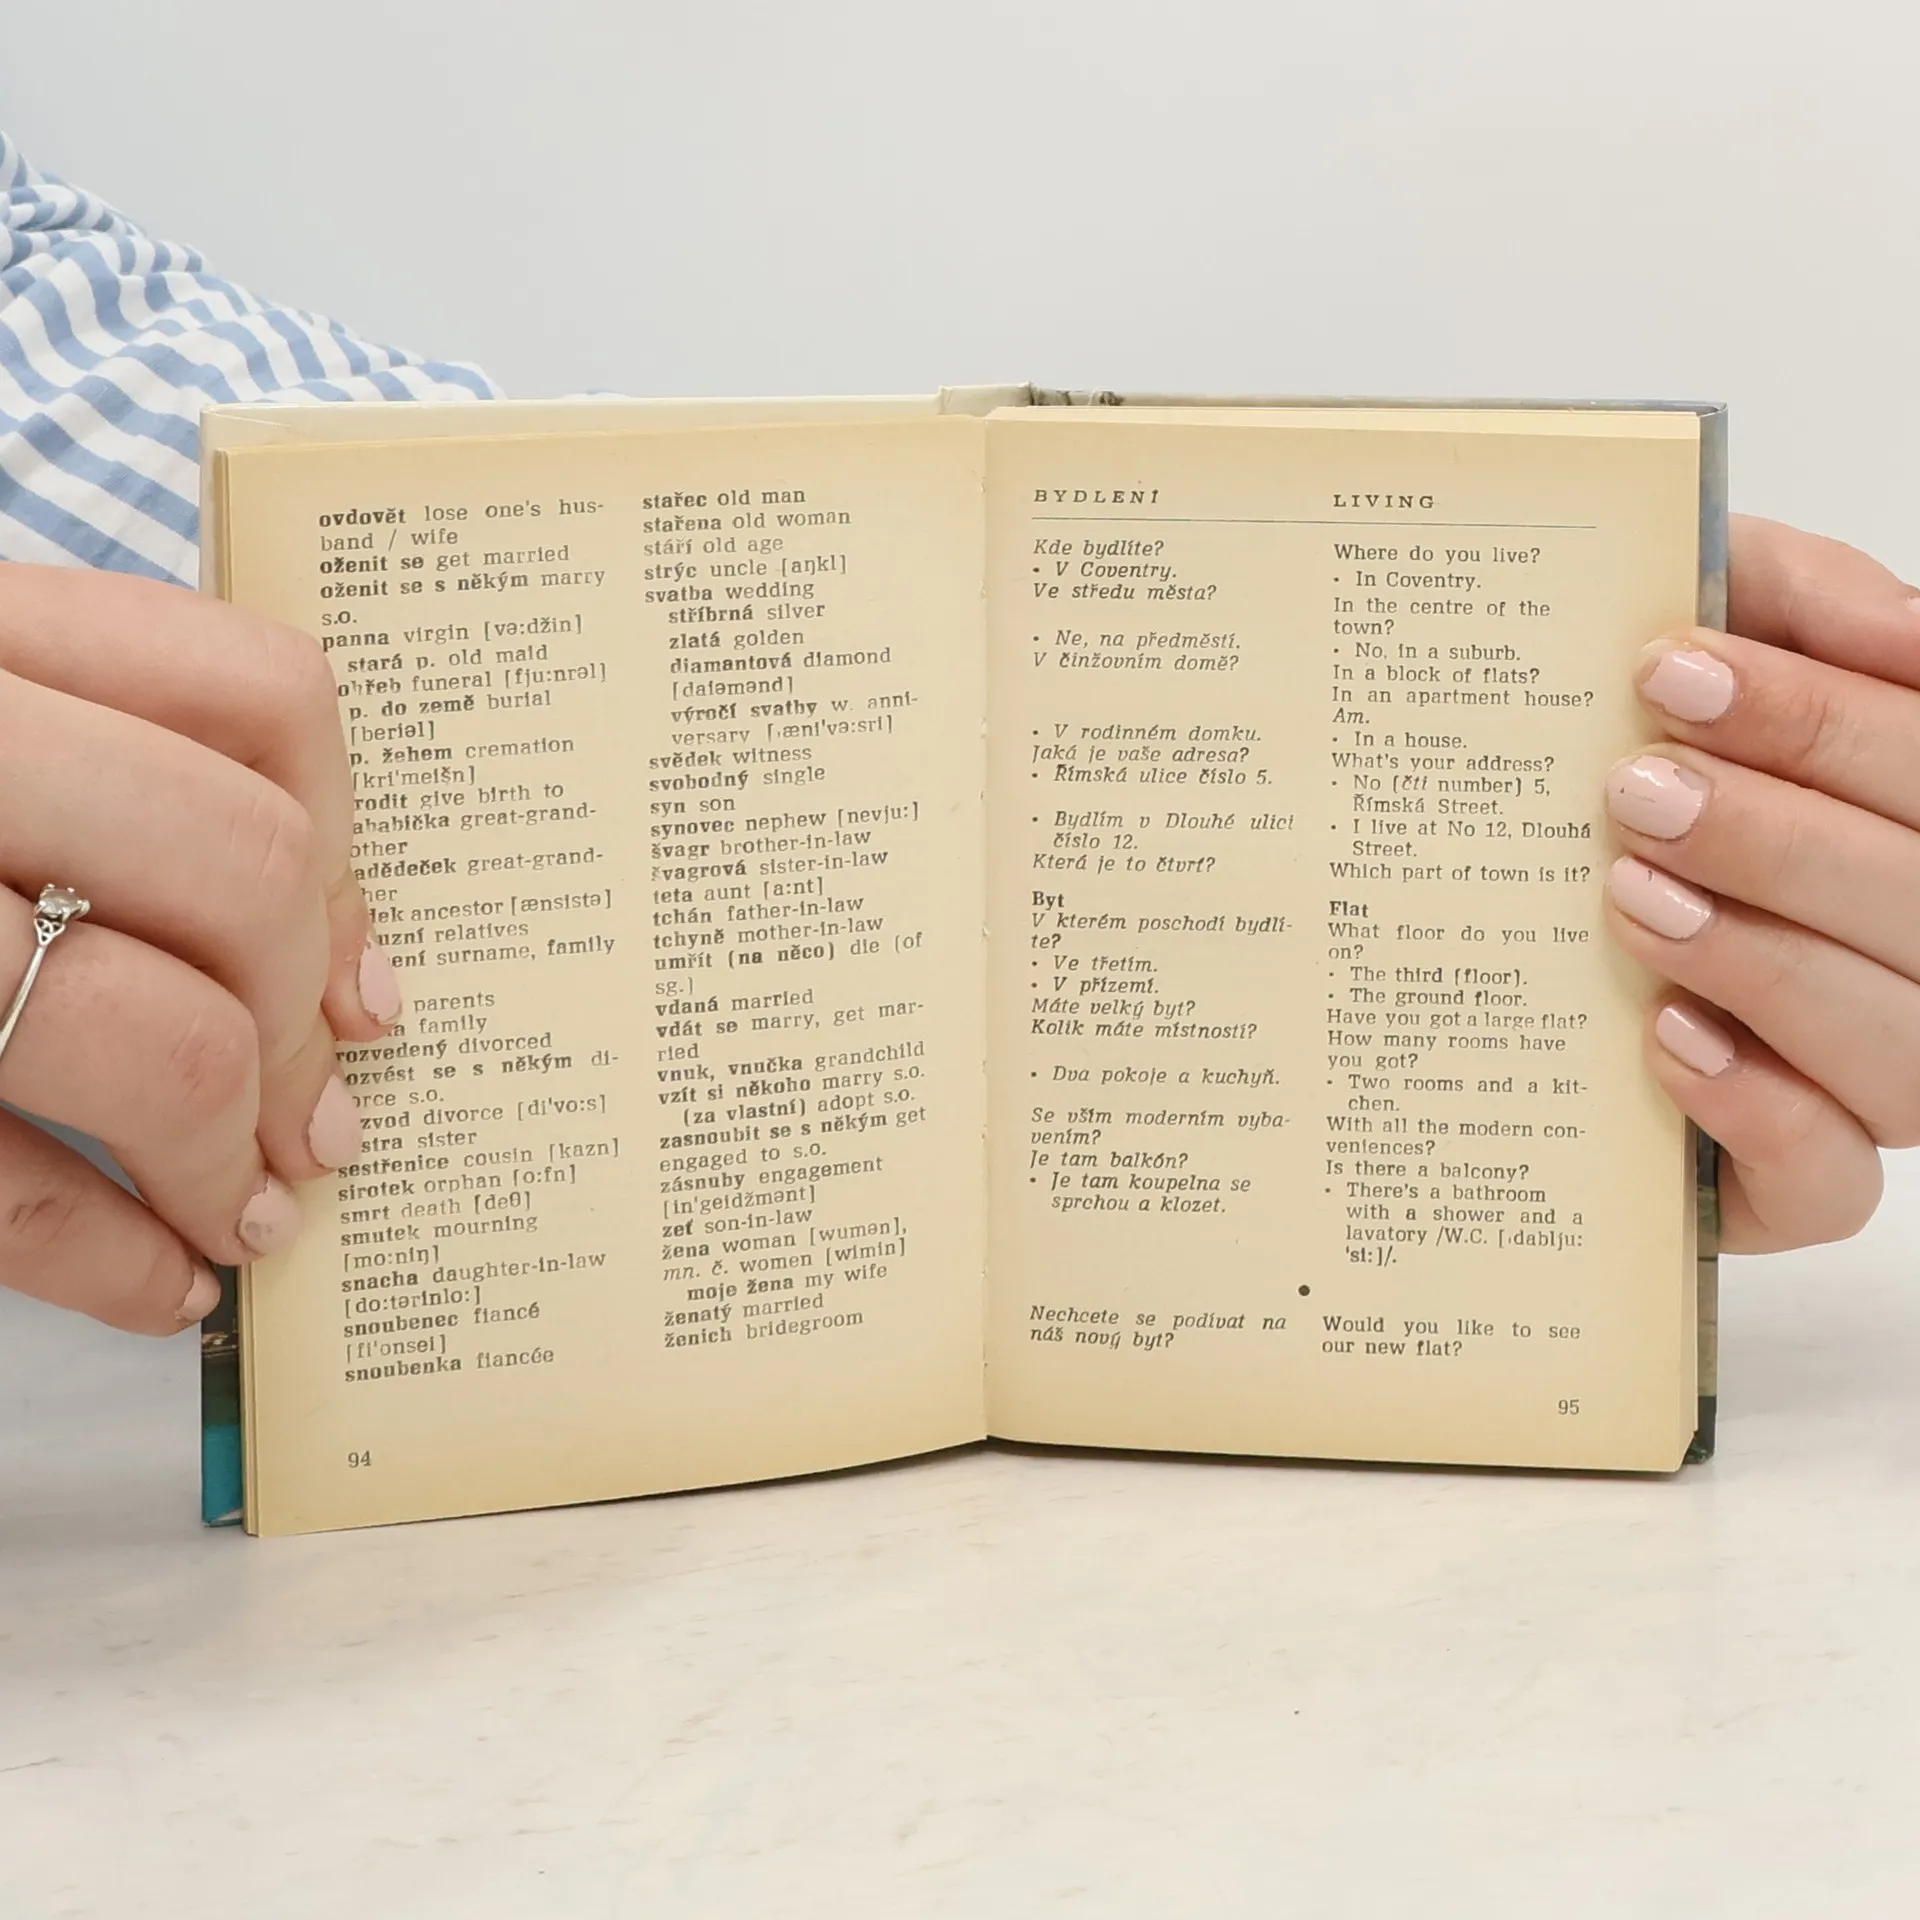 ovdovět lose one's hus-
band / wife
oženit se get married
oženit se s někým marry
s.o.
panna virgin [və:džin]
stará p. old maid
funeral [fju:nrəl]
p. do země burial
[beriəl]
p. žehem cremation
[kri'meišn]
give birth to
great-grand-
great-grand-
ancestor [ænsistə]
relatives
surname, family
parents
family
rozvedený divorced
se s někým di-
s.o.
divorce [di'vo:s]
sister
sestřenice cousin [kazn]
sirotek orphan [o:fn]
smrt death [deθ]
smutek mourning
[mo:niŋ]
snacha daughter-in-law
[do:tərinlo:]
snoubenec fiancé
[fi'onsei]
snoubenka fiancée
94
stařec old man
stařena old woman
stáří old age
strýc uncle [aŋkl]
svatba wedding
stříbrná silver
zlatá golden
diamantová diamond
[daiəmənd]
výročí svatby w. anni-
versary [ˌæni'və:sri]
svědek witness
svobodný single
syn son
synovec nephew [nevju:]
švagr brother-in-law
švagrová sister-in-law
teta aunt [a:nt]
tchán father-in-law
tchyně mother-in-law
umřít (na něco) die (of
sg.)
vdaná married
vdát se marry, get mar-
ried
vnuk, vnučka grandchild
vzít si někoho marry s.o.
(za vlastní) adopt s.o.
zasnoubit se s někým get
engaged to s.o.
zásnuby engagement
[in'geidžmənt]
zeť son-in-law
žena woman [wumən],
mn. č. women [wimin]
moje žena my wife
ženatý married
ženich bridegroom
BYDLENÍ
Kde bydlíte?
• V Coventry.
Ve středu města?
• Ne, na předměstí.
V činžovním domě?
• V rodinném domku.
Jaká je vaše adresa?
• Římská ulice číslo 5.
• Bydlím v Dlouhé ulici
číslo 12.
Která je to čtvrť?
Byt
V kterém poschodí bydlí-
te?
• Ve třetím.
• V přízemí.
Máte velký byt?
Kolik máte místností?
• Dva pokoje a kuchyň.
Se vším moderním vyba-
vením?
Je tam balkón?
• Je tam koupelna se
sprchou a klozet.
Nechcete se podívat na
náš nový byt?
LIVING
Where do you live?
• In Coventry.
In the centre of the
town?
• No, in a suburb.
In a block of flats?
In an apartment house?
Am.
• In a house.
What's your address?
• No (čti number) 5,
Římská Street.
• I live at No 12, Dlouhá
Street.
Which part of town is it?
Flat
What floor do you live
on?
• The third (floor).
• The ground floor.
Have you got a large flat?
How many rooms have
you got?
• Two rooms and a kit-
chen.
With all the modern con-
veniences?
Is there a balcony?
• There's a bathroom
with a shower and a
lavatory /W.C. [ˌdablju:
'si:]/.
•
Would you like to see
our new flat?
95